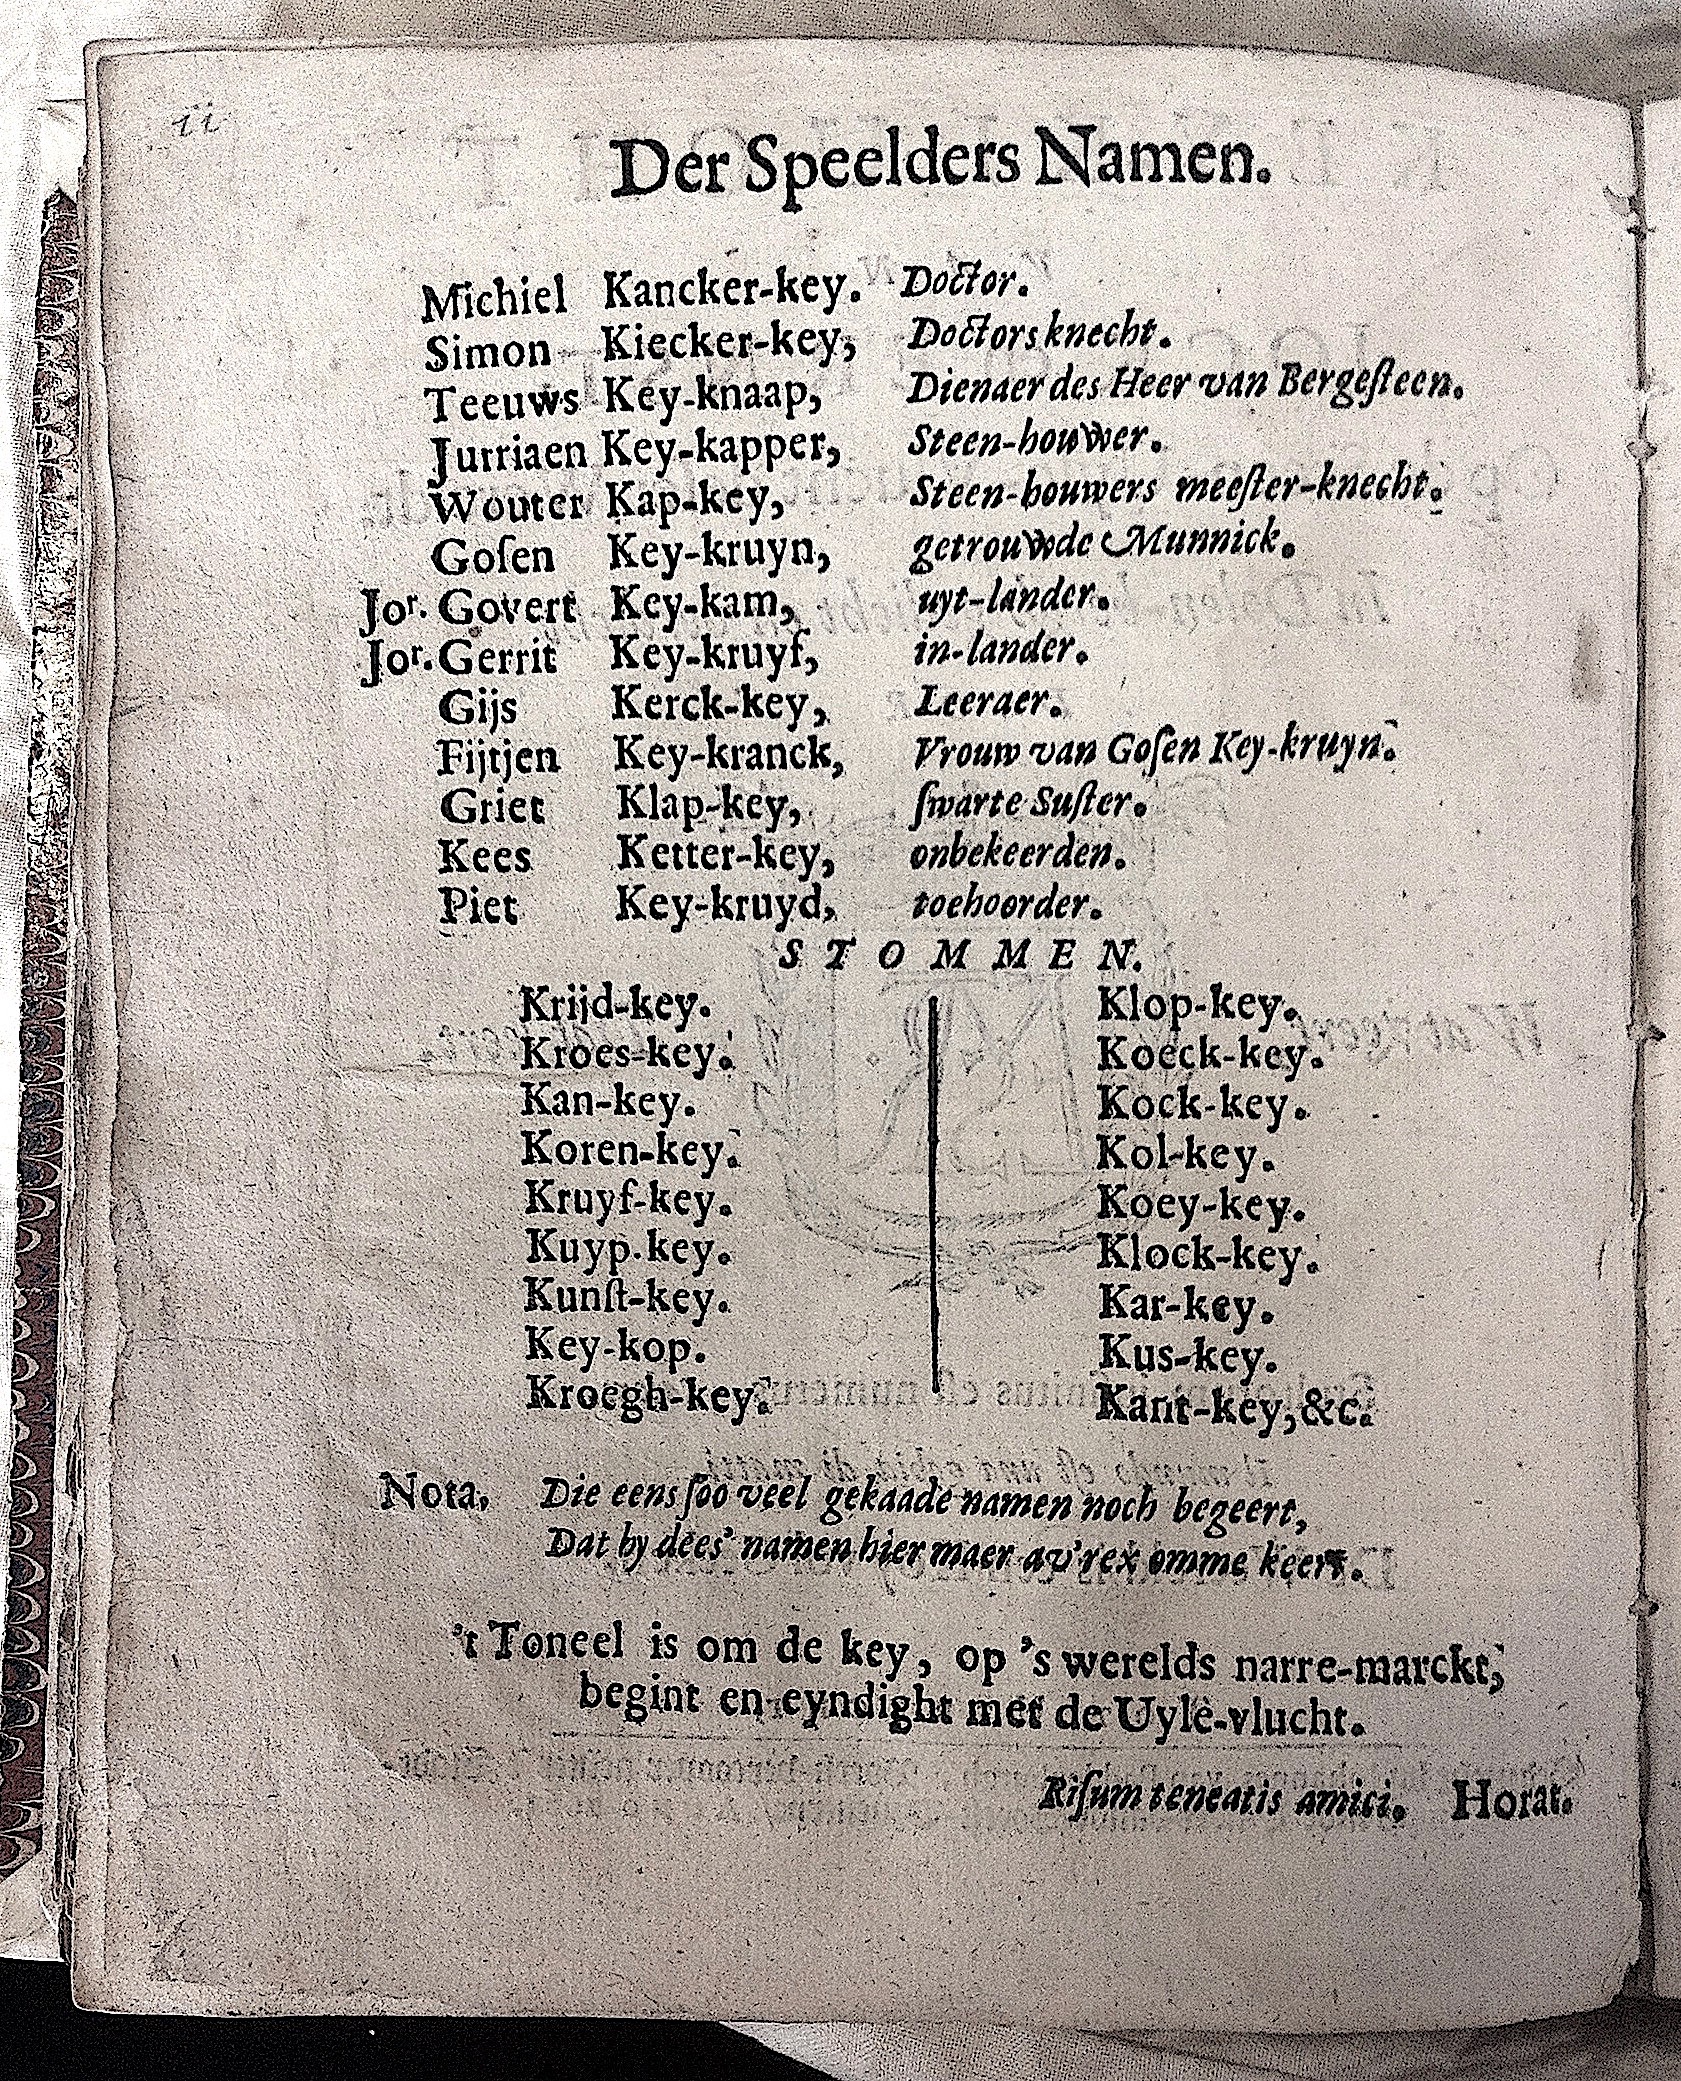 ii
Der Speelders Namen.
Michiel Kancker-key. Doctor.
Simon Kiecker-key, Doctors knecht.
Teeuws Key-knaap, Dienaer des Heer van Bergeſteen.
Jurriaen Key-kapper, Steen-houwer.
Wouter Kap-key, Steen-houwers meeſter-knecht.
Goſen Key-kruyn, getrouwde Munnick.
Jor. Govert Key-kam, uyt-lander.
Jor. Gerrit Key-kruyf, in-lander.
Gijs Kerck-key, Leeraer.
Fijtjen Key-kranck, Vrouw van Goſen Key-kruyn.
Griet Klap-key, ſwarte Suſter.
Kees Ketter-key, onbekeerden.
Piet Key-kruyd, toehoorder.
STOMMEN.
Krijd-key. Klop-key.
Kroes-key. Koeck-key.
Kan-key. Kock-key.
Koren-key. Kol-key.
Kruyf-key. Koey-key.
Kuyp-key. Klock-key.
Kunſt-key. Kar-key.
Key-kop. Kus-key.
Kroegh-key. Kant-key, &c.
Nota, Die eens ſoo veel gekaade namen noch begeert,
Dat hy dees' namen hier maer av'rex omme keert.
't Toneel is om de key, op 's werelds narre-marckt,
begint en eyndight met de Uyle-vlucht.
Riſum teneatis amici. Horat.